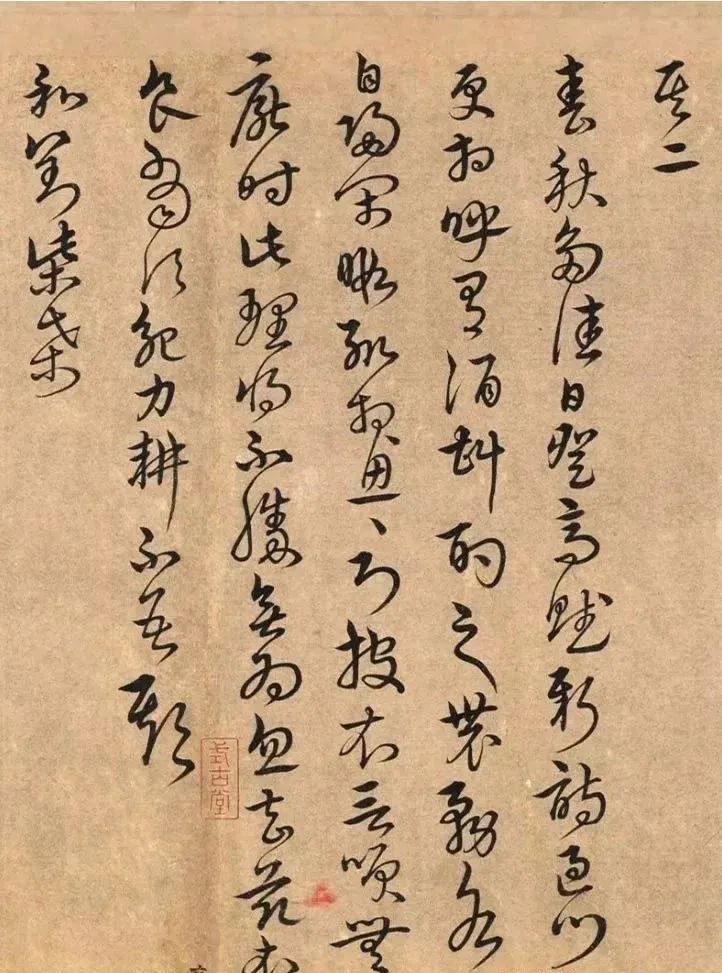 其二
春秋多佳日登高賦新詩過門
更相呼有酒斟酌之農務各
自歸閑暇輒相思〻乃披衣言咲無
厭時此理將不勝無為忽去茲衣
食當須紀力耕不吾欺
和劉柴桑
式古堂